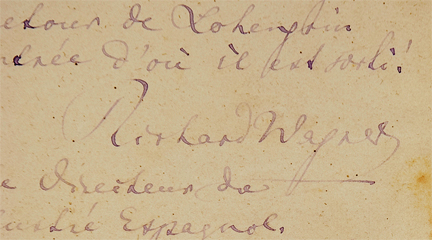 etour de Lohengrin
ntrée d'où il est sorti!
Richard Wagner
e Directeur de
lustré Espagnol.